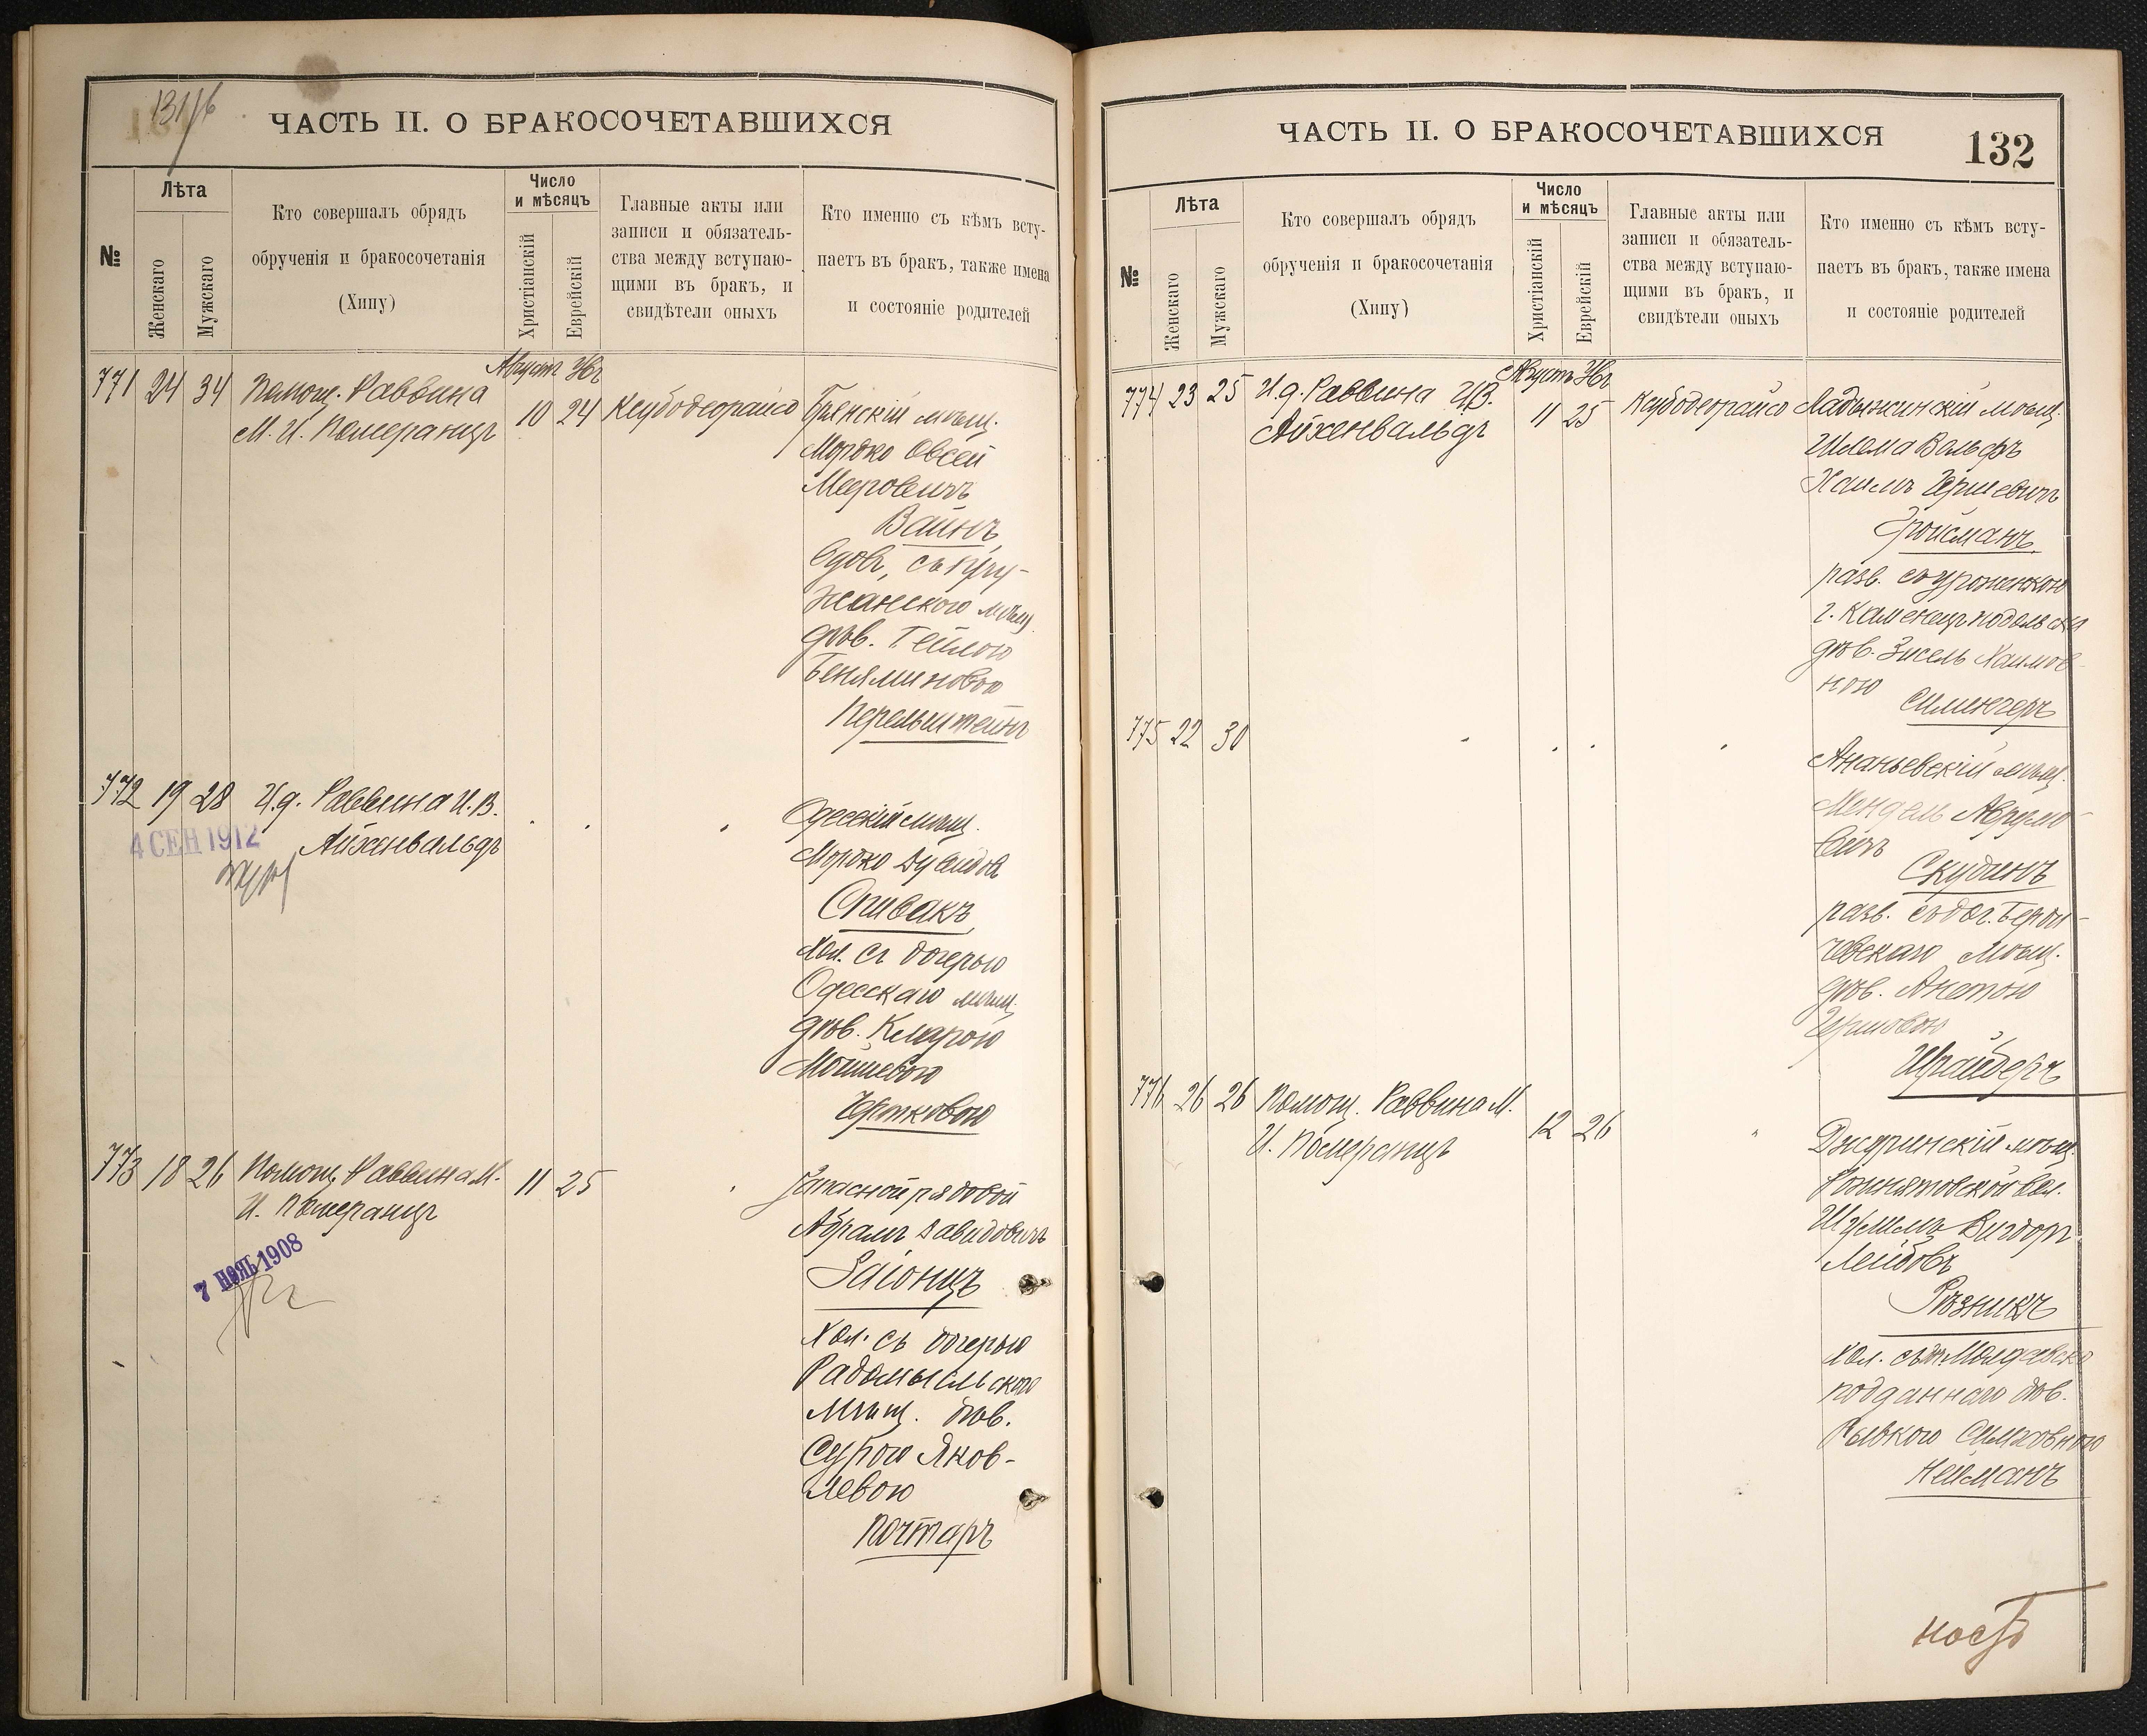 131/б
ЧАСТЬ II. О БРАКОСОЧЕТАВШИХСЯ
№
Лѣта
Женскаго
Мужскаго
Кто совершалъ обрядъ
обрученія и бракосочетанія
(Хипу)
Число
и мѣсяцъ
Христіанскій
Еврейскій
Главные акты или
записи и обязатель-
ства между вступаю-
щими въ бракъ, и
свидѣтели оныхъ
Кто именно съ кѣмъ всту-
паетъ въ бракъ, также имена
и состояніе родителей
Августъ
771 24 34 Помощ. Раввина
М. И. Померанцъ
10 24 Ксубодеорайсо
мѣщ.
Мордко Овсей
Мееровичъ
Вайнъ,
вдов., съ Пру-
жанскою мѣщ.
дѣв. Тейлою
Беняминовою
Перельштейнъ
772 19 28 И.д. Раввина И. В.
Айхенвальдъ
4 СЕН 1912
Одесскій мѣщ.
Мордко Дувидов
Спивакъ
хол. съ дочерью
Одесскаго мѣщ.
дѣв. Кларою
Мошкевою
773 18 26 Помощ. Раввина М.
И. Померанцъ
11 25
7 НОЯЬ 1908
Запасной рядовой
Абрамъ Давидовичъ
Заіонцъ
Хол. съ дочерью
Радомысльского
Мѣщ. дѣв.
Сурою Яков-
левою
Почтаръ
ЧАСТЬ II. О БРАКОСОЧЕТАВШИХСЯ
132
№
Лѣта
Женскаго
Мужскаго
Кто совершалъ обрядъ
обрученія и бракосочетанія
(Хипу)
Число
и мѣсяцъ
Христіанскій
Еврейскій
Главные акты или
записи и обязатель-
ства между вступаю-
щими въ бракъ, и
свидѣтели оныхъ
Кто именно съ кѣмъ всту-
паетъ въ бракъ, также имена
и состояніе родителей
Августъ
774 23 25 И.д. Раввина И.В.
Айхенвальдъ
11 25 Ксубодеорайсо
Ладыжинскій мѣщ.
Шлема Вольфъ
Хаимъ Гершевичъ
Гройсманъ
разв. съ уроженкою
г. Каменецъ подольска
дѣв. Зисель Хаимов-
ною
775 22 30
Ананьевскій мѣщ.
Мендель Аврумо-
вичъ
Скудинъ
разв. съ доч. Берди-
чевскаго мѣщ.
дѣв. Анетою
Гершовою
Шрайберъ
776 26 26 Помощ. Раввина М.
И. Померанцъ
12 26
мѣщ.
Шулимъ Вигдоръ
Лейбовъ
Рѣзникъ
Хол. съ
подданнаго дѣв.
Рывкою Симховною
Нейманъ